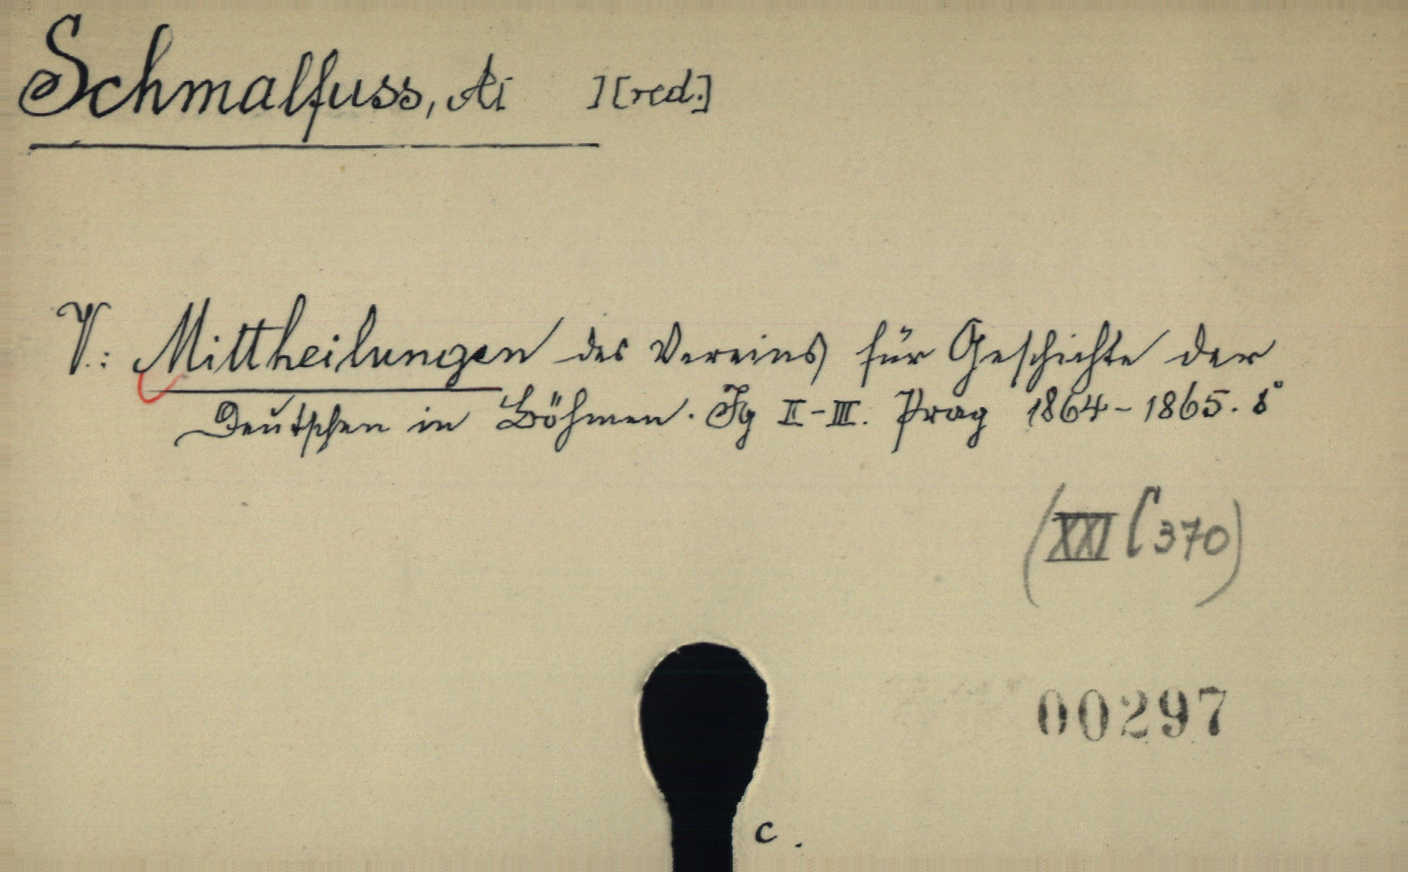 Schmalfuss, Ai ][red.]
V.: Mittheilungen des Vereins für Geschichte der
Deutschen in Böhmen. Jg II-III. Prag 1864-1865. 8°
(XXI C 370)
00297
c.